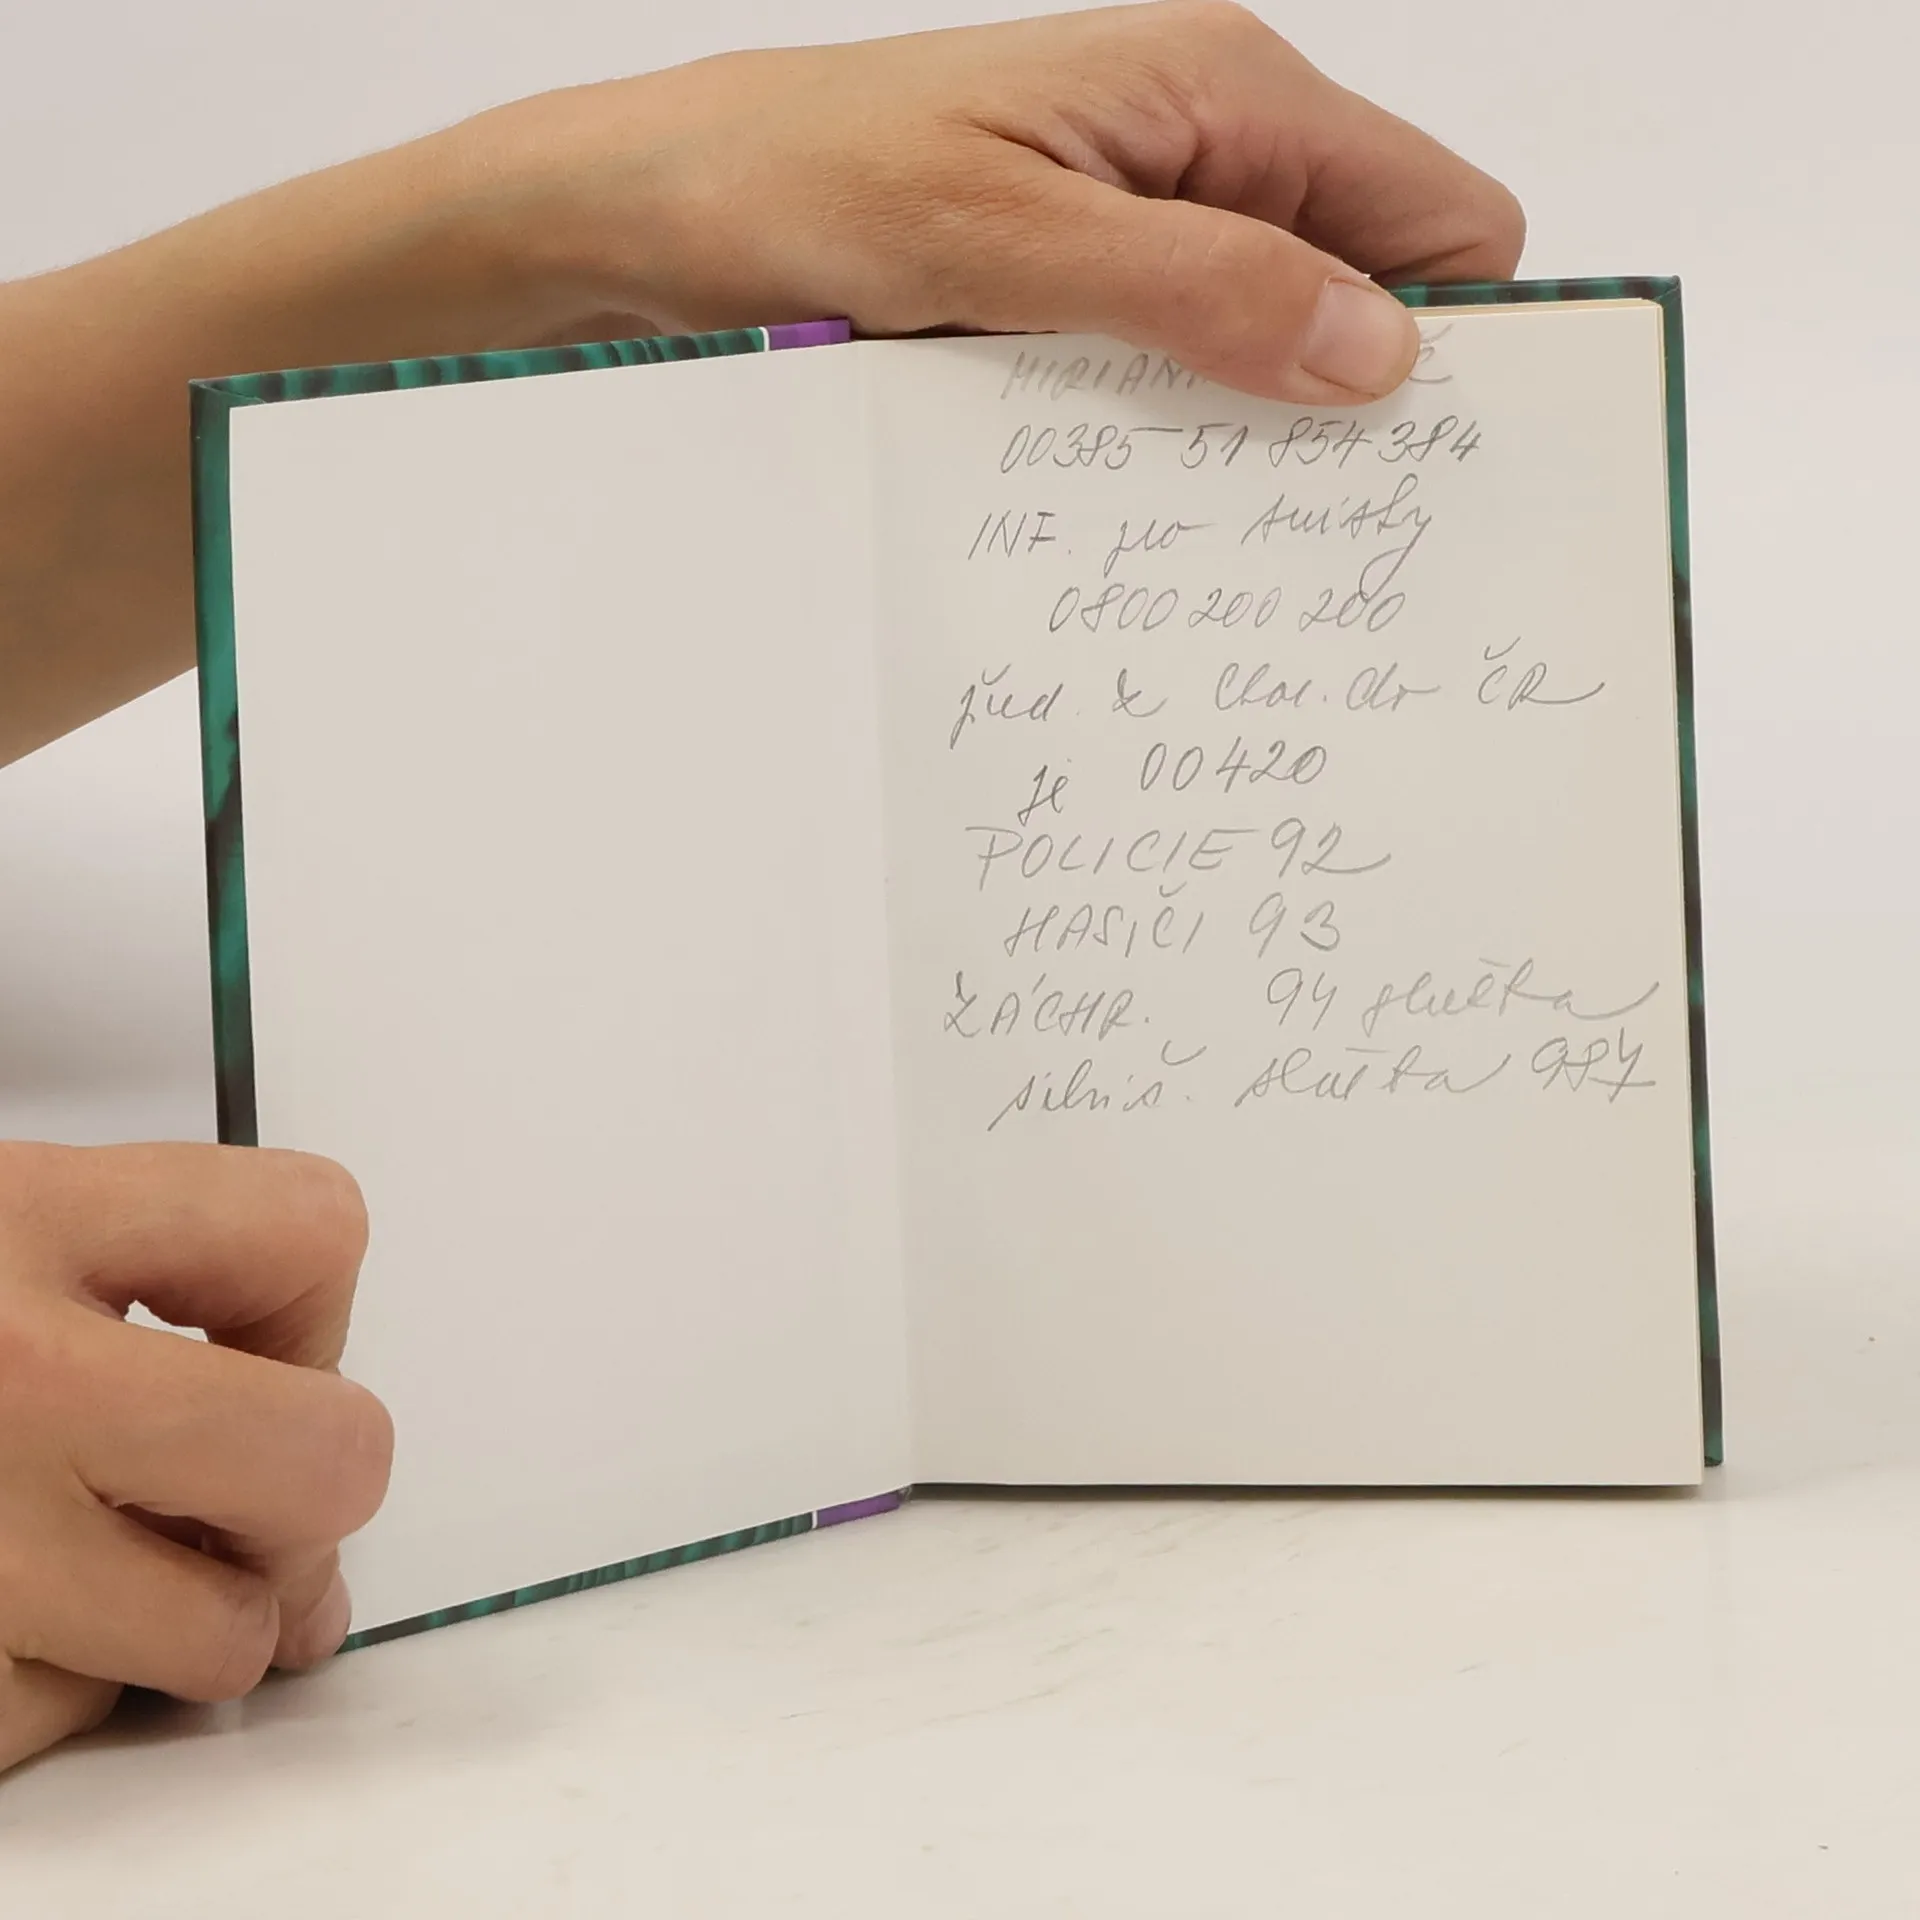 00385 51 854 384
INF. pro turisty
0800 200 200
před. z Chor. do ČR
je 00420
POLICIE 92
HASIČI 93
ZÁCHR. 94 služba
silnič. služba 987